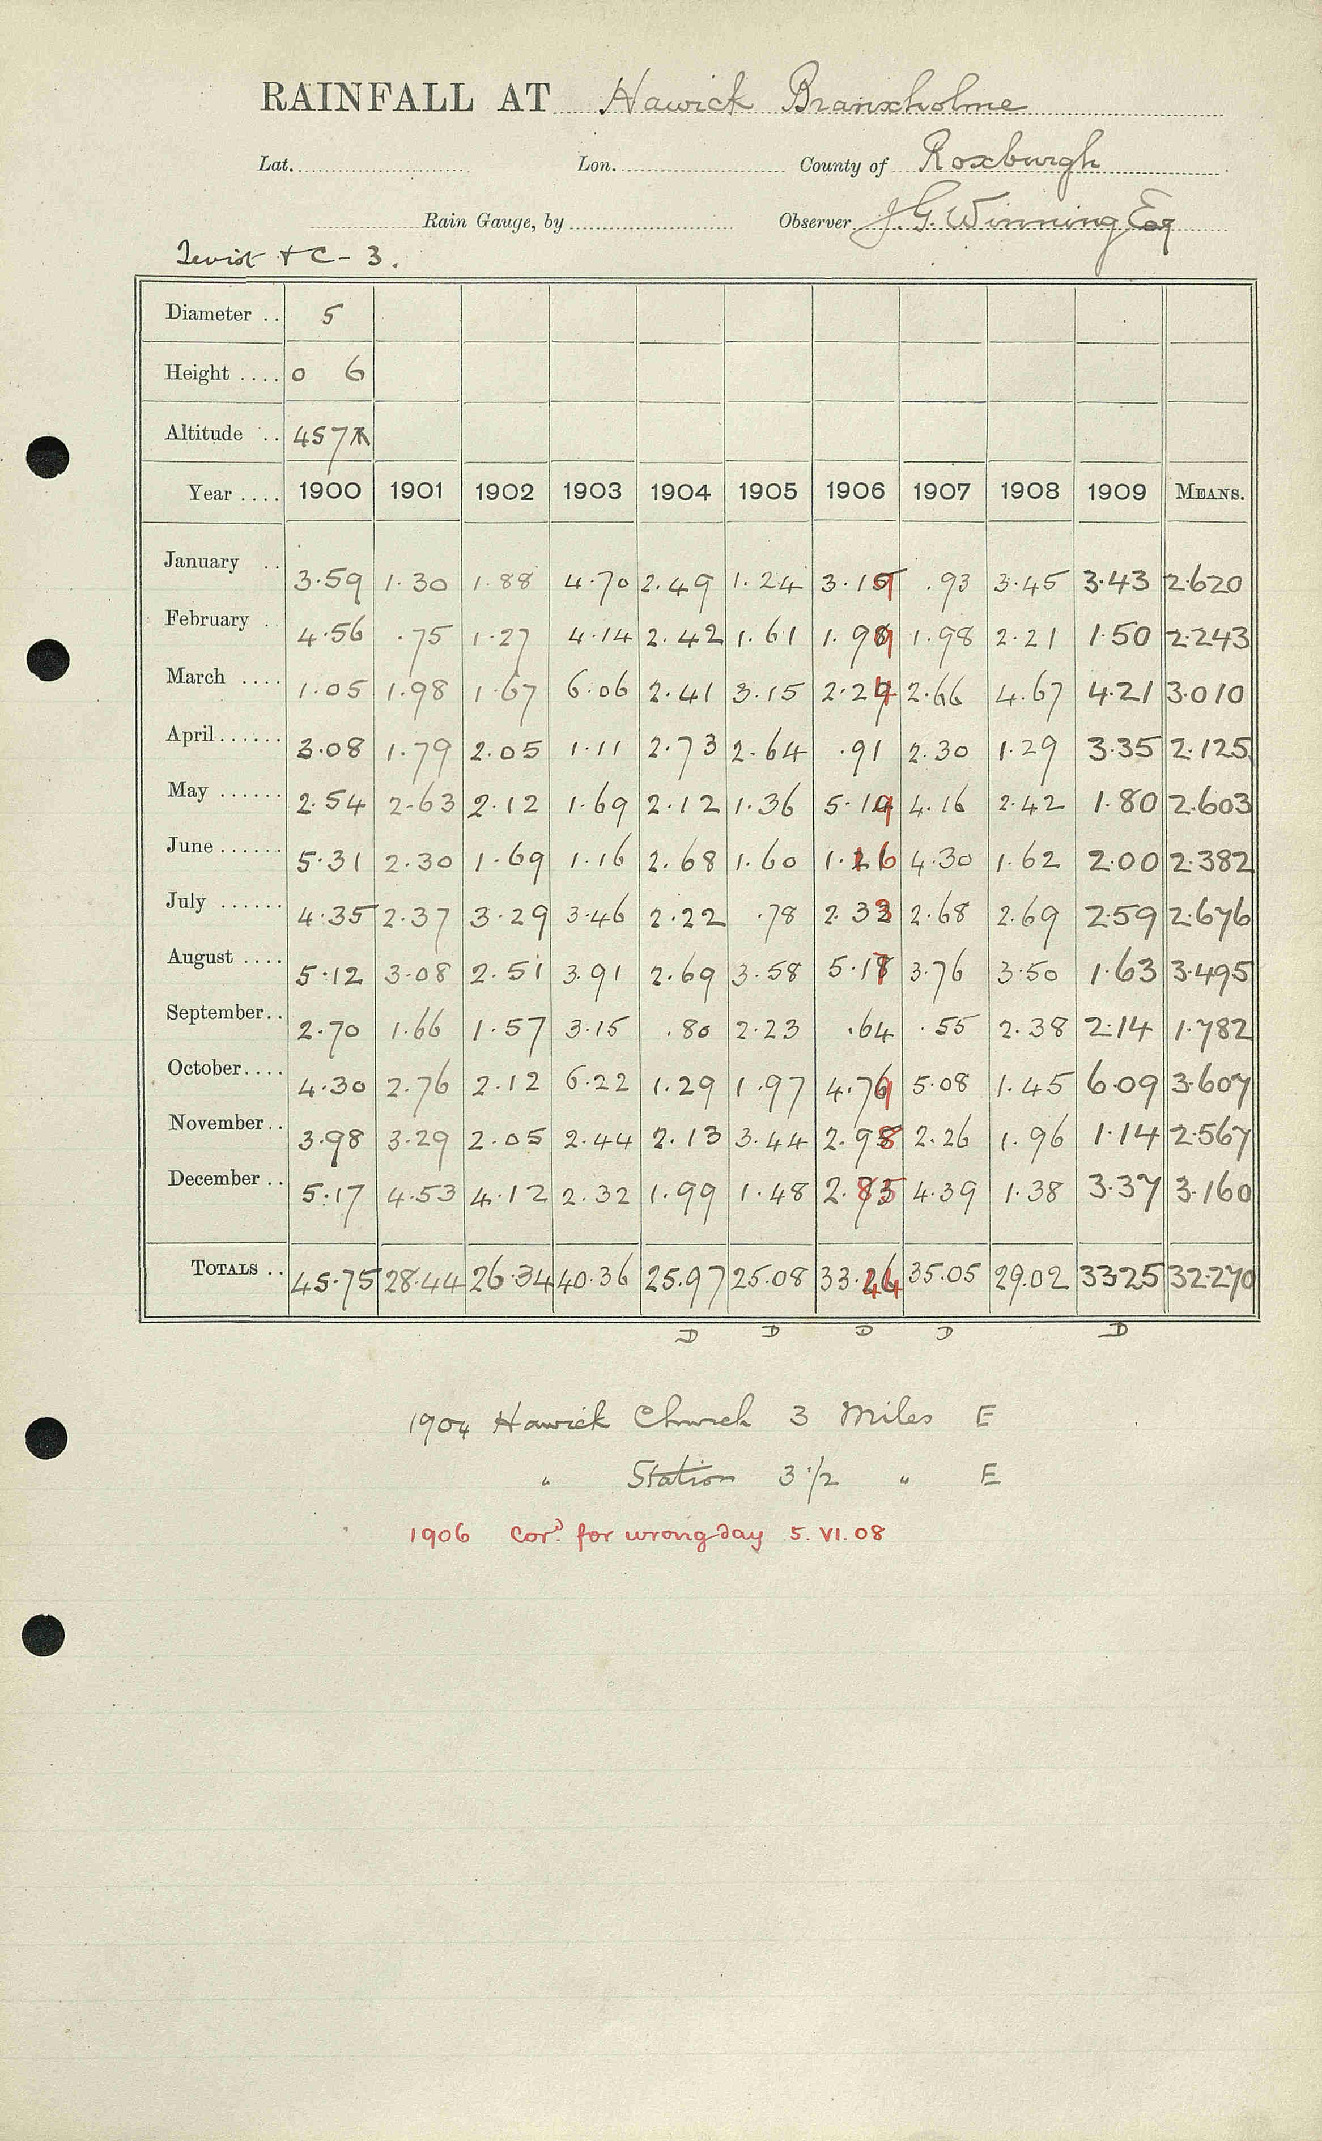 RAINFALL AT Hawick Branxholme
Lat. Lon. County of Roxburgh
Rain Gauge, by Observer J. G. Winning Esq
Teviot + C - 3.
Diameter .. 5
Height .... 0 6
Altitude .. 457
Year .... 1900 1901 1902 1903 1904 1905 1906 1907 1908 1909 MEANS.
January .. 3.59 1.30 1.88 4.70 2.49 1.24 3.19 .93 3.45 3.43 2.620
February .. 4.56 .75 1.27 4.14 2.42 1.61 1.99 1.98 2.21 1.50 2.243
March .... 1.05 1.98 1.67 6.06 2.41 3.15 2.24 2.66 4.67 4.21 3.010
April ...... 3.08 1.79 2.05 1.11 2.73 2.64 .91 2.30 1.29 3.35 2.125
May ...... 2.54 2.63 2.12 1.69 2.12 1.36 5.19 4.16 2.42 1.80 2.603
June ...... 5.31 2.30 1.69 1.16 2.68 1.60 1.16 4.30 1.62 2.00 2.382
July ...... 4.35 2.37 3.29 3.46 2.22 .78 2.33 2.68 2.69 2.59 2.676
August .... 5.12 3.08 2.51 3.91 2.69 3.58 5.17 3.76 3.50 1.63 3.495
September .. 2.70 1.66 1.57 3.15 .80 2.23 .64 .55 2.38 2.14 1.782
October .... 4.30 2.76 2.12 6.22 1.29 1.97 4.79 5.08 1.45 6.09 3.607
November .. 3.98 3.29 2.05 2.44 2.13 3.44 2.98 2.26 1.96 1.14 2.567
December .. 5.17 4.53 4.12 2.32 1.99 1.48 2.85 4.39 1.38 3.37 3.160
TOTALS .. 45.75 28.44 26.34 40.36 25.97 25.08 33.44 35.05 29.02 33.25 32.270
D D D D D
1904 Hawick Church 3 Miles E
" Station 3 1/2 " E
1906 Cord. for wrong day 5. VI. 08